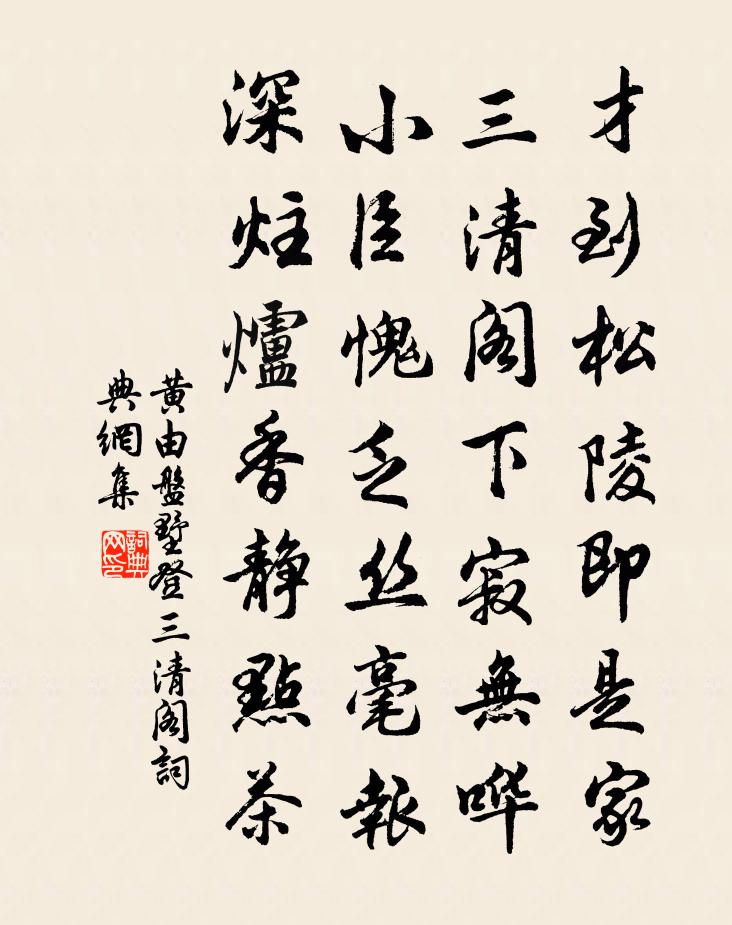 才到松陵即是家
三清阁下寂無哗
小臣愧乏丝毫報
深炷爐香静點茶
黄由盤墅登三清阁詞
典網集
詞典
网印